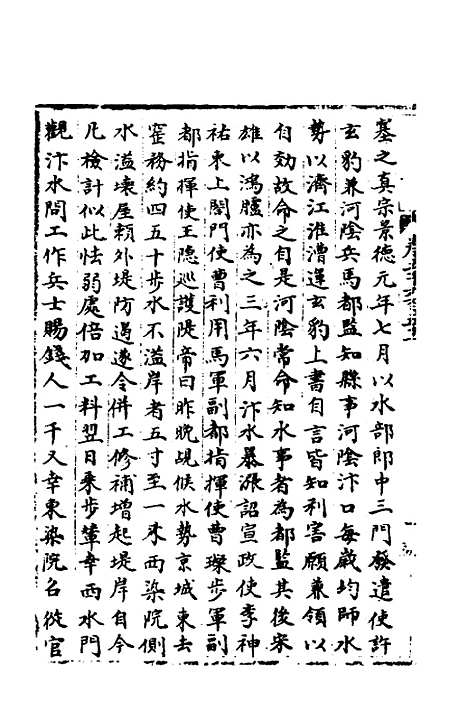 塞之真宗景德元年七月以水部郎中三門發遣使許
玄豹兼河陰兵馬都監知縣事河陰汴口每歲均師水
勢以濟江淮漕運玄豹上書自言皆知利害願兼領以
自効故命之自是河陰常命知水事者為都監其後宋
雄以鴻臚亦為之三年六月汴水暴漲詔宣政使李神
祐東上閤門使曹利用馬軍副都指揮使曹璨步軍副
都指揮使王隱巡護隄帝曰昨晚覘候水勢京城東去
窑務約四五十步水不溢岸者五寸至一來西染院側
水溢壞屋賴外堤防遏遂令併工修補增起堤岸自今
凡檢計似此怯弱處倍加工料翌日乘步輦幸西水門
觀汴水問工作兵士賜錢人一千又幸東染院名從官